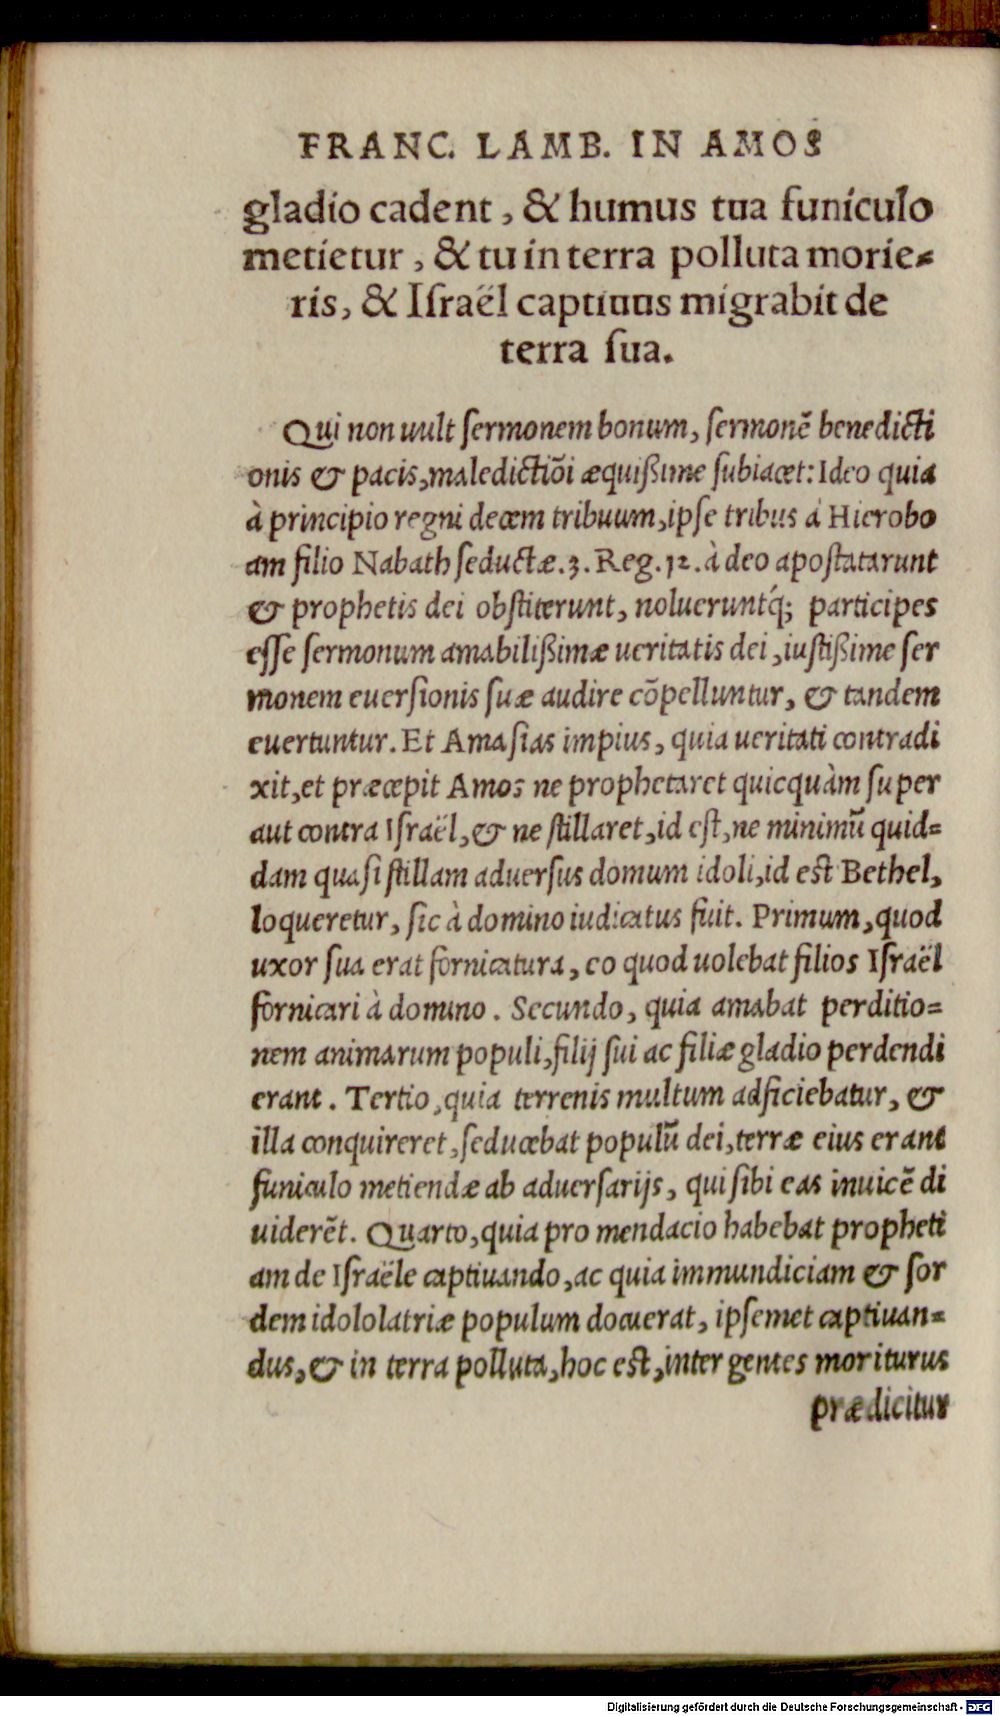 FRANC. LAMB. IN AMOS
gladio cadent, & humus tua funículo
metíetur, & tu in terra polluta moríe⸗
rís, & Iſraël captiuus mígrabit de
terra ſua.
Qui non uult ſermonem bonum, ſermonē benedicti
onis & pacis, maledictiõi æquißime ſubiacet: Ideo quia
à principio regni decem tribuum, ipſe tribus à Hierobo
am filio Nabath ſeductæ. 3. Reg. 12. à deo apoſtatarunt
& prophetis dei obſtiterunt, nolueruntq́; participes
eſſe ſermonum amabilißimæ ueritatis dei, iuſtißime ſer
monem euerſionis ſuæ audire cõpelluntur, & tandem
euertuntur. Et Amaſias impius, quia ueritati contradi
xit, et præcepit Amos ne prophetaret quicquàm ſuper
aut contra Iſraël, & ne ſtillaret, id eſt, ne minimū quid⸗
dam quaſi ſtillam aduerſus domum idoli, id eſt Bethel,
loqueretur, ſic à domino iudicatus fuit. Primum, quod
uxor ſua erat fornicatura, eo quod uolebat filios Iſraël
fornicari à domino. Secundo, quia amabat perditio⸗
nem animarum populi, filij ſui ac filiæ gladio perdendi
erant. Tertio, quia terrenis multum adficiebatur, &
illa conquireret, ſeducebat populū dei, terræ eius erant
funiculo metiendæ ab aduerſarijs, qui ſibi eas inuicē di
uiderēt. Quarto, quia pro mendacio habebat propheti
am de Iſraële captiuando, ac quia immundiciam & ſor
dem idololatriæ populum docuerat, ipſemet captiuan⸗
dus, & in terra polluta, hoc eſt, inter gentes moriturus
prædicitur
Digitalisierung gefördert durch die Deutsche Forschungsgemeinschaft - DFG